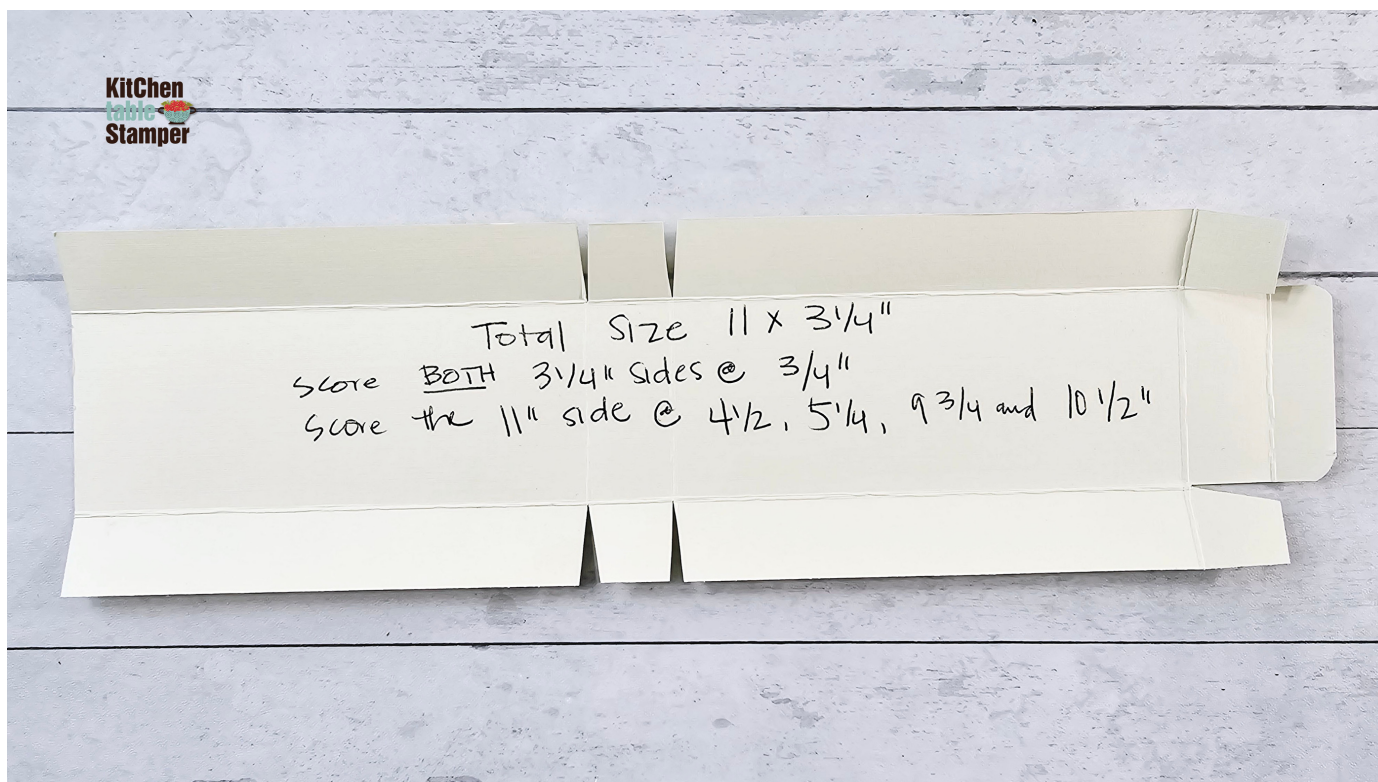 KitChen
table
Stamper
Total Size 11 x 3 1/4"
Score BOTH 3 1/4" sides @ 3/4"
Score the 11" side @ 4 1/2, 5 1/4, 9 3/4 and 10 1/2"